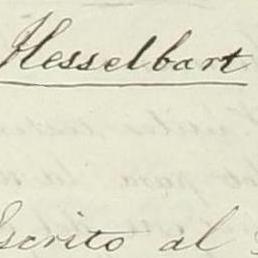 Hesselbart
Escrito al